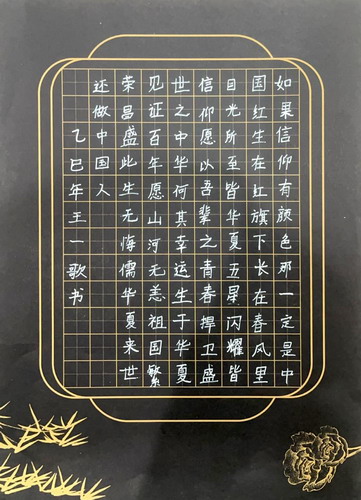 如果信仰有颜色那一定是中
国红生在红旗下长在春风里
目光所至皆华夏五星闪耀皆
信仰愿以吾辈之青春捍卫盛
世之中华何其幸运生于华夏
见证百年愿山河无恙祖国繁
荣昌盛此生无悔儒华夏来世
还做中国人
乙巳年王一歌书